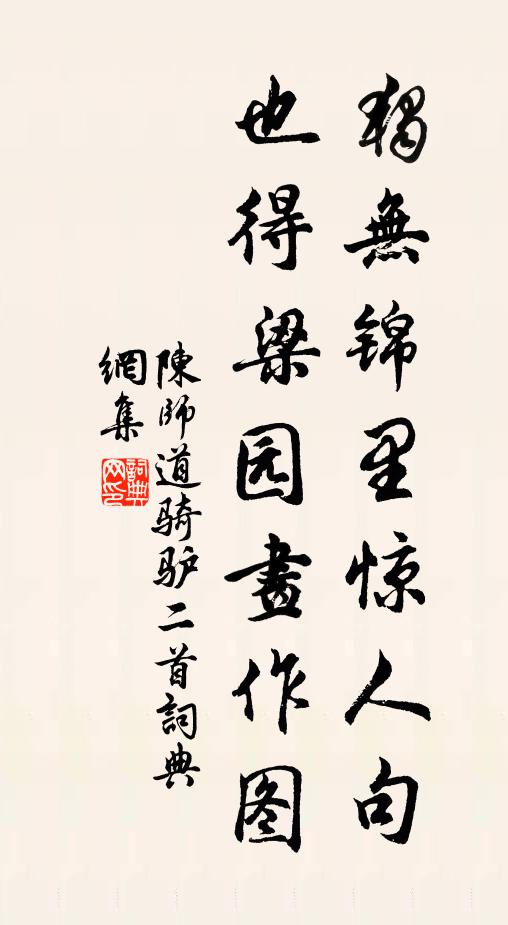 獨無锦里惊人句
也得梁园畫作图
陳師道骑驴二首詞典
網集
詞典网印